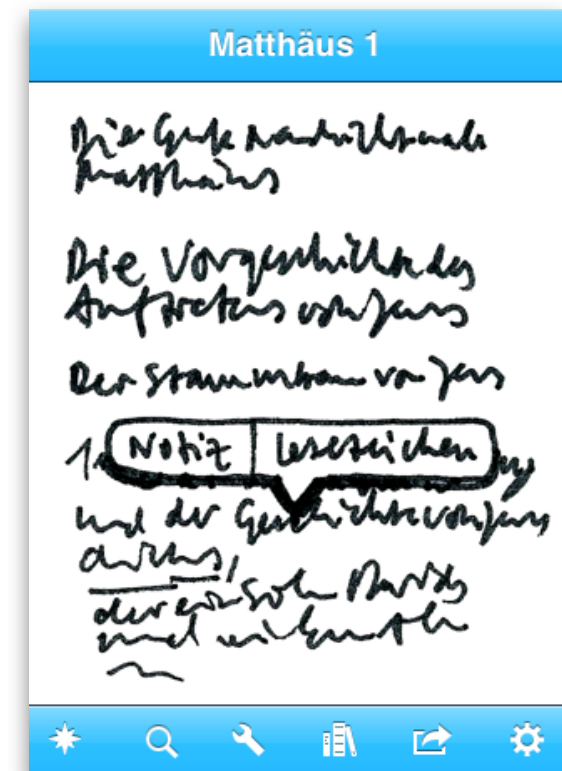 Matthäus 1
Die Gute Nachricht nach
Matthäus
Die Vorgeschichte des
Auftretens von Jesus
Der Stammbaum von Jesus
Notiz Lesezeichen
und der Geschichte von Jesus
Christus,
der ein Sohn
und